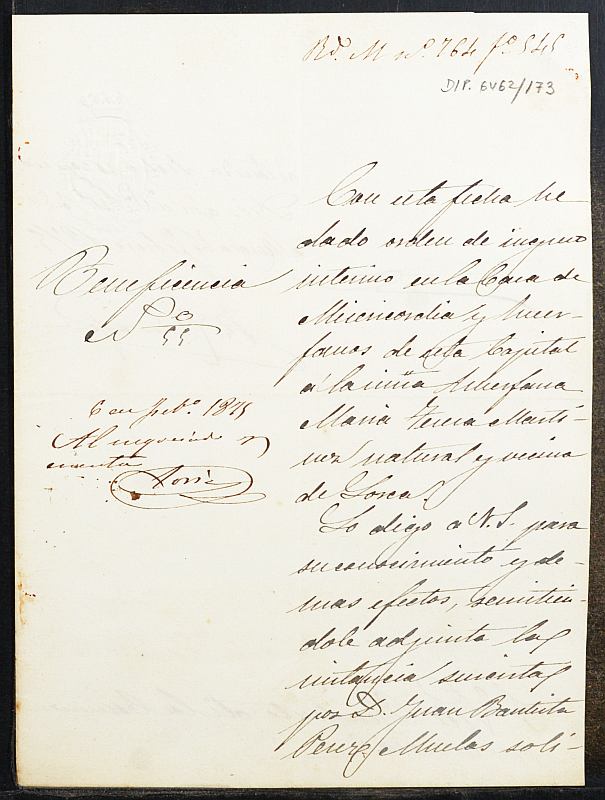 Rd. M nº. 764 fº 545
DIP. 6462/173
Beneficencia
Nº
55
6 en Febº. 1875
Al negociado y
cuenta
Con esta fecha he
dado orden de ingreso
interino en la Casa de
Misericordia y huer-
fanos de esta Capital
á la niña huerfana
Maria Teresa Marti-
nez natural y vecina
de Lorca.
Lo digo a V.S. para
su conocimiento y de-
mas efectos, remitien-
dole adjunta la
instancia suscrita
por D. Juan Bautista
Perez Muelas soli-